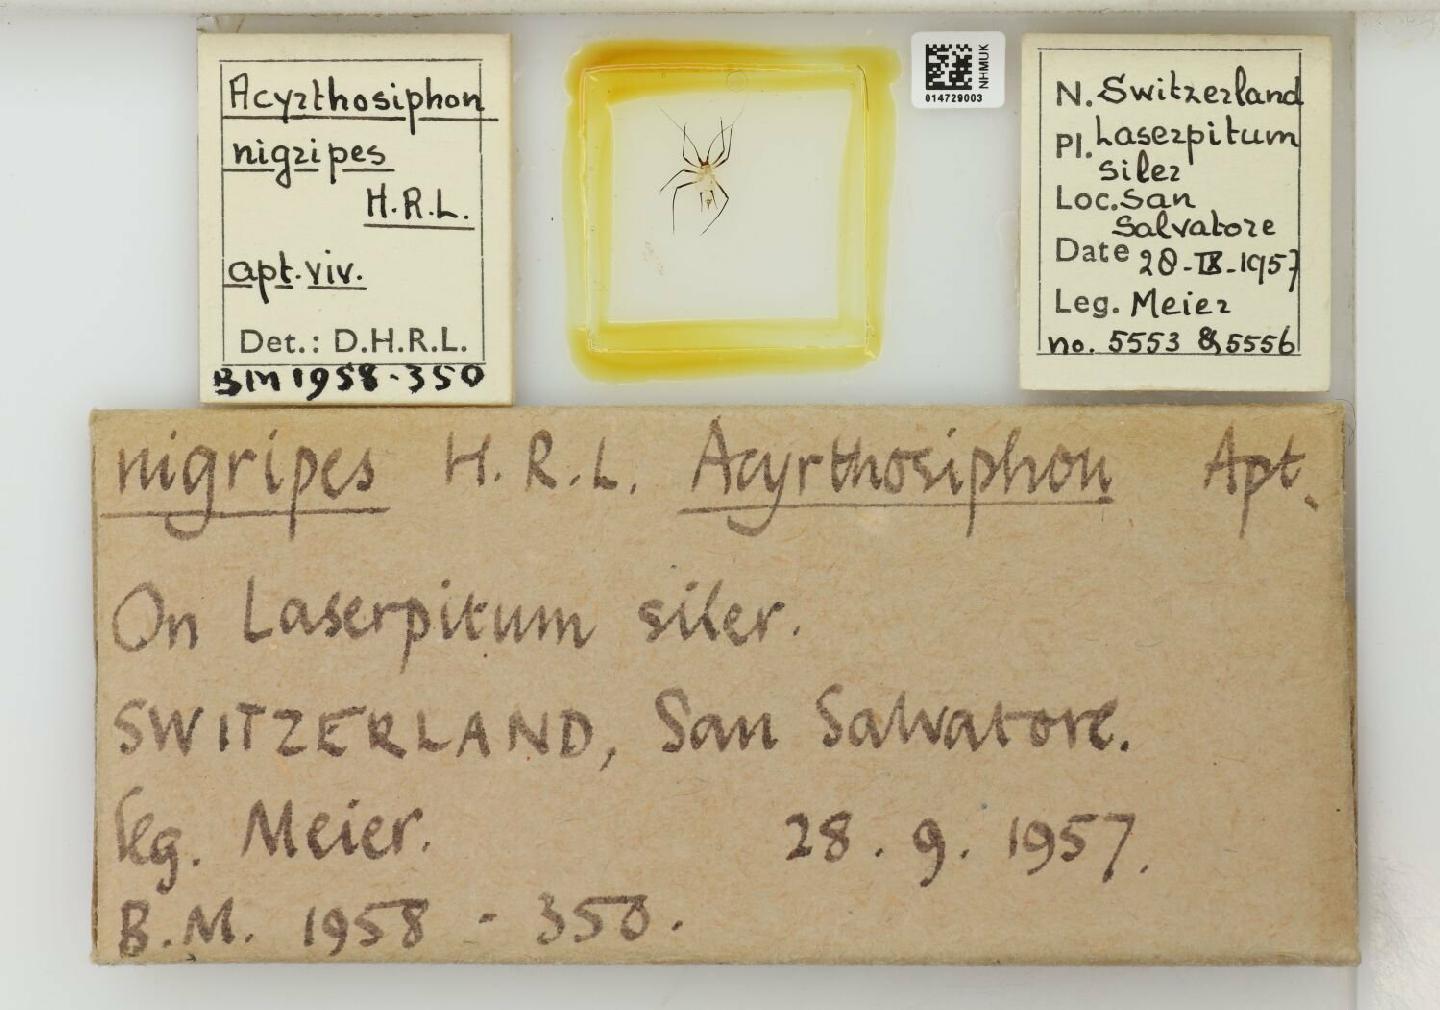 Acyrthosiphon
nigripes
H.R.L.
apt. viv.
Det.: D.H.R.L.
BM 1958-350
NHMUK
014729003
N. Switzerland
Pl. Laserpitum
siler
Loc. San
Salvatore
Date 28-IX-1957
Leg. Meier
no. 5553 & 5556
nigripes H.R.L. Acyrthosiphon Apt.
On Laserpitum siler.
SWITZERLAND, San Salvatore.
leg. Meier. 28.9.1957.
B.M. 1958-350.